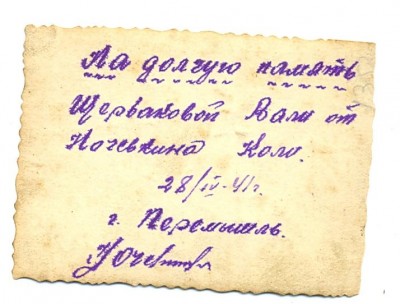 На долгую память
Щерваковой Вали от
Ночевкина Коли.
28/IV-41г.
г. Перемышль.